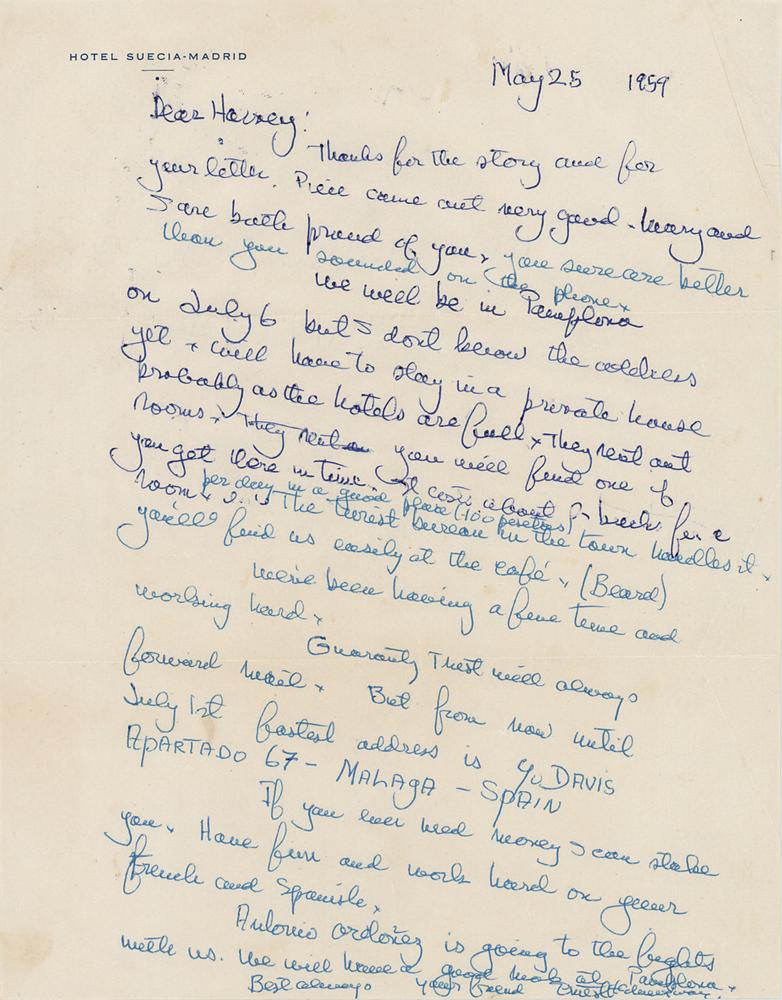 HOTEL SUECIA-MADRID
May 25 1959
Dear Harvey:
Thanks for the story and for
your letter. Piece came out very good. Mary and
I are both proud of you x you sure are better
than you sounded on the phone x
We will be in Pamplona
on July 6 but I dont know the address
yet x will have to stay in a private house
probably as the hotels are full x They rent out
rooms x They rent you will find one if
you get there in time. It costs about bucks for a
per day in a good place (100 pesetas)
room x The turist bureau in the town handles it x
you'll find us easily at the café x (Beard)
We've been having a fine time and
working hard x
Guaranty Trust will always
forward mail x But from now until
July 1st fastest address is c/o DAVIS
APARTADO 67 - MALAGA - SPAIN
If you ever need money I can stake
you x Have fun and work hard on your
French and Spanish x
Antonio Ordoñez is going to the fights
with us. We will have a good mob at Pamplona x
Best always your friend Ernest Hemingway